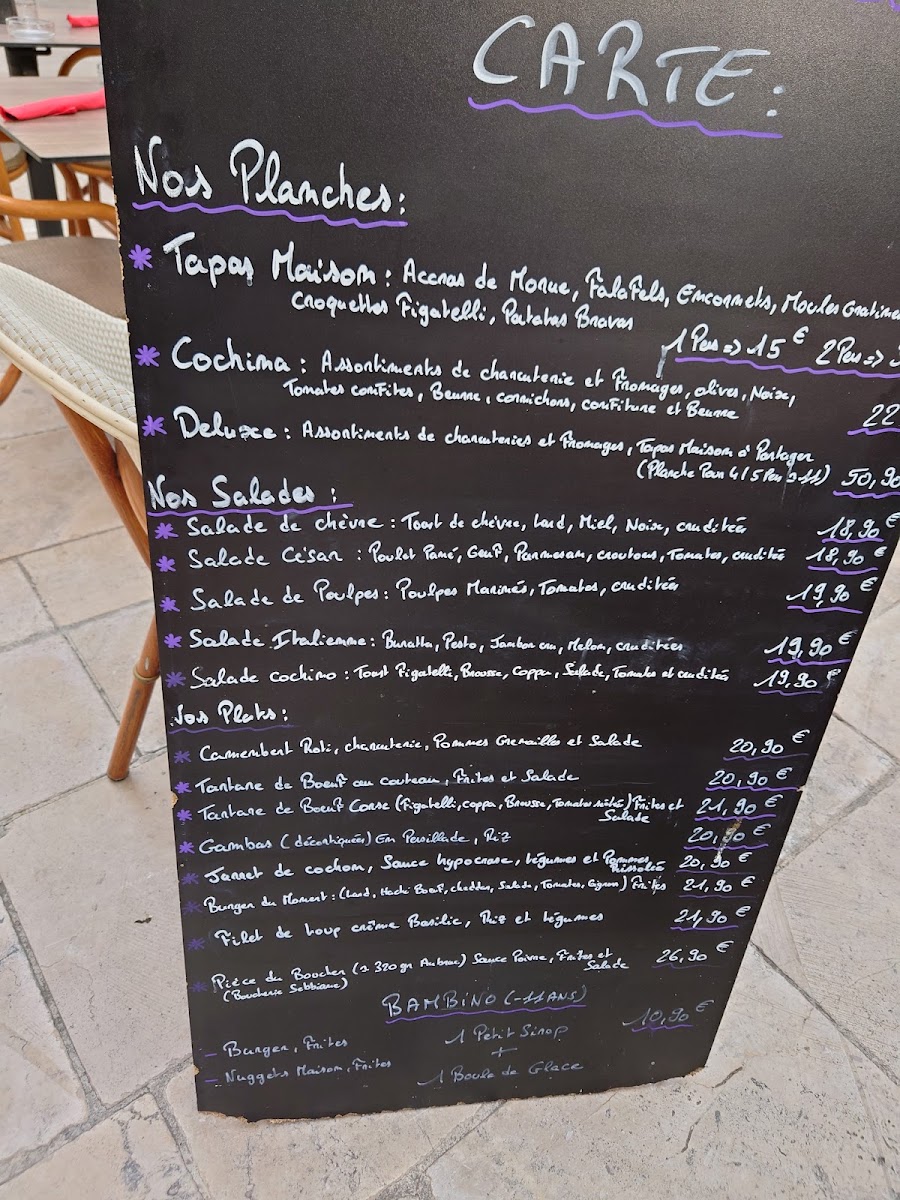 CARTE:
Nos Planches:
* Tapas Maison : Accras de Morue, Falafels, Encornets, Moules Gratiné
Croquettes Figatelli, Patatas Bravas
1 Pers => 15 € 2 Pers =>
* Cochina : Assortiments de charcuterie et Fromages, olives, Noix,
Tomates confites, Beurre, cornichons, confiture et Beurre 22
* Deluxe : Assortiments de charcuteries et Fromages, Tapas Maison à Partager
(Planche Pour 4/5 Pers) 50,90
Nos Salades :
* Salade de chèvre : Toast de chèvre, Lard, Miel, Noix, crudités 18,90 €
* Salade César : Poulet Pané, Oeuf, Parmesan, croutons, Tomates, crudités 18,90 €
* Salade de Poulpes : Poulpes Marinés, Tomates, crudités 19,90 €
* Salade Italienne : Buratta, Pesto, Jambon cru, Melon, crudités 19,90 €
* Salade cochino : Toast Figatelli, Brousse, Coppa, Salade, Tomates et crudités 19,90 €
Nos Plats :
* Camembert Roti, charcuterie, Pommes Grenailles et Salade 20,90 €
* Tartare de Boeuf au couteau, Frites et Salade 20,90 €
* Tartare de Boeuf Corse (Figatelli, coppa, Brousse, Tomates séché) Frites et 21,90 €
Salade
* Gambas (décortiquées) En Persillade, Riz 20,90 €
* Jarret de cochon, Sauce hypocrase, légumes et Pommes 20,90 €
Rissolée
* Burger du Moment : (Lard, Haché Boeuf, cheddar, Salade, Tomates, Oignons) Frites 21,90 €
* Filet de loup crème Basilic, Riz et légumes 21,90 €
* Pièce du Boucher (± 320 gr Aubrac) Sauce Poivre, Frites et 26,90 €
(Boucherie Sebbiane) Salade
BAMBINO (-11 ANS) 10,90 €
- Burger, Frites 1 Petit Sirop
+
- Nuggets Maison, Frites 1 Boule de Glace